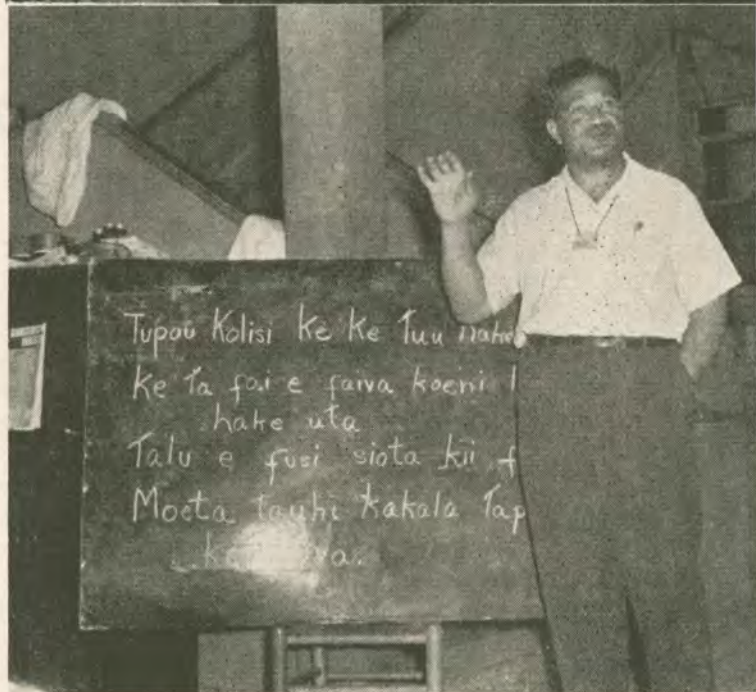 Tupou Kolisi Ke Ke Tuu
Ke Ta fai e faiva koeni
hake uta
Talu e fusi siota kii f
Moeta tauhi kakala Tap